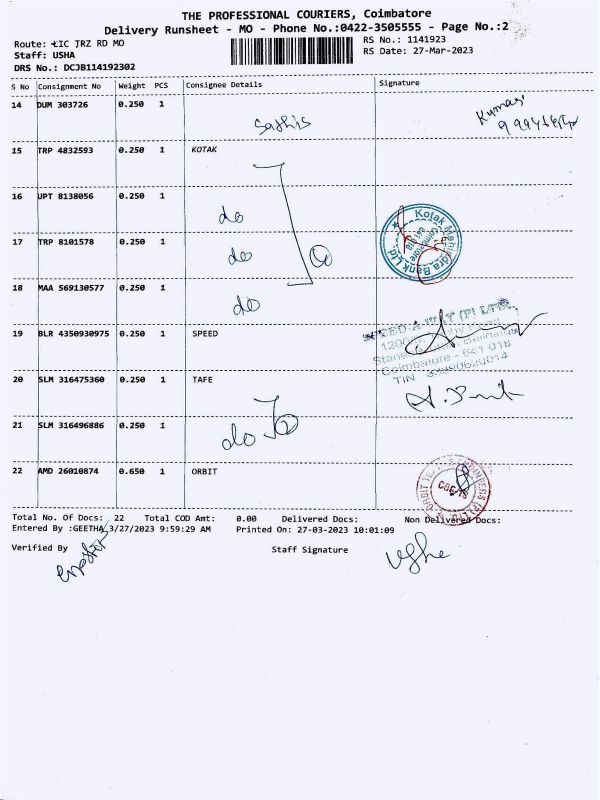 THE PROFESSIONAL COURIERS, Coimbatore
Delivery Runsheet - MO - Phone No.:0422-3505555 - Page No.:2
Route: LIC TRZ RD MO
RS No.: 1141923
Staff: USHA
RS Date: 27-Mar-2023
DRS No.: DCJB114192302
S No Consignment No Weight PCS Consignee Details Signature
14 DUM 303726 0.250 1 Sathis Kumar
15 TRP 4832593 0.250 1 KOTAK
16 UPT 8138056 0.250 1 do
17 TRP 8101578 0.250 1 do
Kotak Mahindra Bank Ltd.
Coimbatore
641 018
18 MAA 569130577 0.250 1 do
19 BLR 4350930975 0.250 1 SPEED
SPEED-A-WAY (P) LTD.
Coimbatore - 641 018
20 SLM 316475360 0.250 1 TAFE
21 SLM 316496886 0.250 1 do
22 AMD 26010874 0.650 1 ORBIT
Total No. Of Docs: 22 Total COD Amt: 0.00 Delivered Docs: Non Delivered Docs:
Entered By :GEETHA 3/27/2023 9:59:29 AM Printed On: 27-03-2023 10:01:09
Verified By Staff Signature